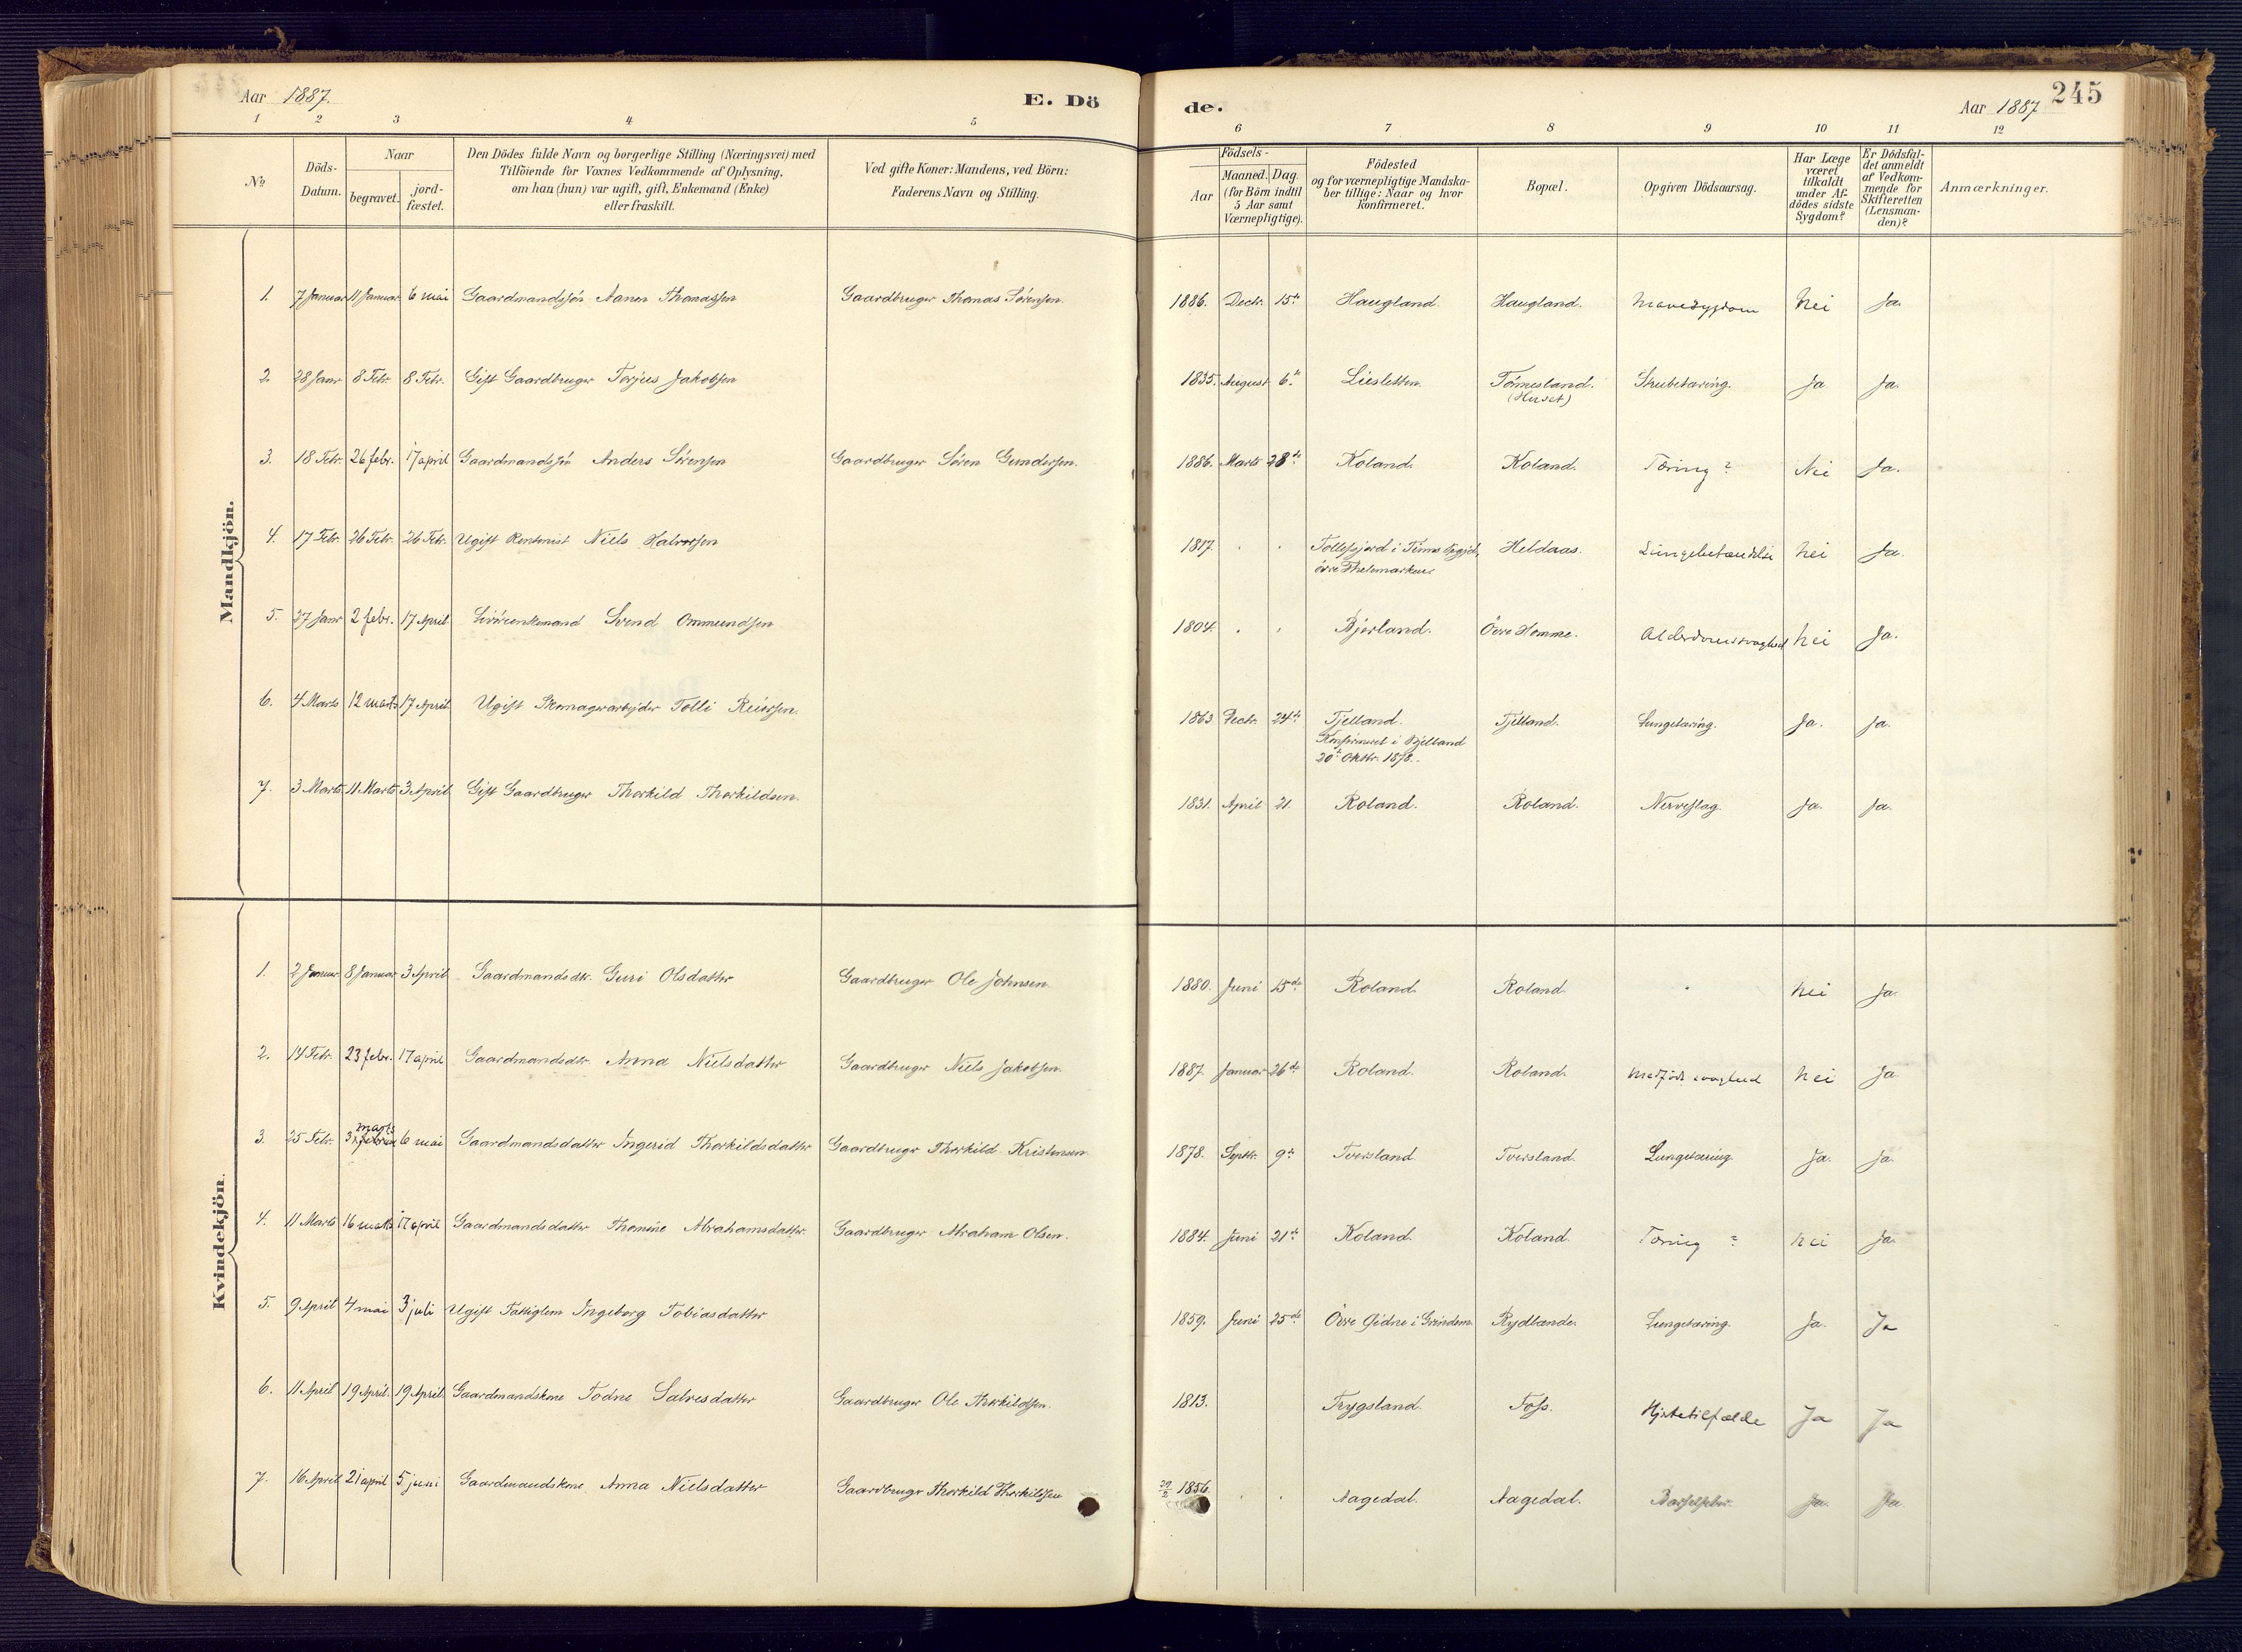 Aar 1887. E. Dö
de. Aar 1887 245
1 2 3 4 5
6 7 8 9 10 11 12
No
Döds-Datum.
Naar
begravet.
jord-fæstet.
Den Dödes fulde Navn og borgerlige Stilling (Næringsvei) med
Tilföiende for Voxnes Vedkommende af Oplysning,
om han (hun) var ugift, gift, Enkemand (Enke)
eller fraskilt.
Ved gifte Koner: Mandens, ved Börn:
Faderens Navn og Stilling.
Födsels-
Aar
Maaned. Dag.
(for Börn indtil
5 Aar samt
Værnepligtige).
Födested
og for værnepligtige Mandska-
ber tillige: Naar og hvor
konfirmeret.
Bopæl.
Opgiven Dödsaarsag.
Har Læge
været
tilkaldt
under Af-
dödes sidste
Sygdom?
Er Dödsfal-
det anmeldt
af Vedkom-
mende for
Skifteretten
(Lensman-
den)?
Anmærkninger.
Mandkjön.
1. 7 Januar 11 Januar 6 mai Gaardmandssøn Aanen Thomassen Gaardbruger Thomas Sørensen. 1886. Decbr. 15de Haugland. Haugland. Mavesygdom Nei Ja.
2. 28 Janr 8 Febr. 8 Febr. Gift Gaardbruger Terjus Jakobsen 1835. August 6te Liesletten. Tømesland. Strubetæring. Ja Ja.
(Huset)
3. 18 Febr. 26 febr. 17 april Gaardmandssøn Anders Sørensen Gaardbruger Søren Gundersen. 1886. Marts 28de Koland. Koland. Tæring? Nei Ja.
4. 17 Febr. 26 Febr. 26 Febr. Ugift Niels Halvorsen 1817. i Heldaas. Lungebetændelse Nei Ja.
øvre Thelemarken.
5. 27 Janr 2 febr. 17 April Svend Ommundsen 1804. Bjerland. Övre Homme. Alderdomssvaghed Nei Ja.
6. 4 Marts 12 marts 17 April Ugift Skomagerarbeider Tolli Reiersen. 1863 Decbr. 24de Fjelland. Fjelland. Lungetæring. Ja. Ja.
Konfirmeret i Bjelland
20de Oktbr. 1878.
7. 3 Marts 11 Marts 3 April Gift Gaardbruger Thorkild Thorkildsen. 1831. April 21. Roland. Roland. Nerveslag. Ja. Ja.
Kvindekjön.
1. 2 Januar 8 Januar 3 April Gaardmandsdtr. Guri Olsdatter Gaardbruger Ole Johnsen. 1880. Juni 15de Roland. Roland. Nei Ja.
2. 14 Febr. 23 febr. 17 april Gaardmandsdtr. Anna Nielsdatter Gaardbruger Niels Jakobsen. 1887. Januar 26de Roland. Roland. Medfødt svaghed Nei Ja
marts
3. 25 Febr. 3 6 mai Gaardmandsdatter Ingerid Thorkildsdatter Gaardbruger Thorkild Kristensen 1878. Septbr. 9de Tversland Tversland. Lungetæring. Ja. Ja.
4. 11 Marts 16 marts 17 april Gaardmandsdatter Thomine Abrahamsdatter. Gaardbruger Abraham Olsen. 1884. Juni 21de Koland. Koland. Tæring ? Nei Ja.
5. 9 April 4 mai 3 juli Ugift Fattiglem Ingeborg Tobiasdatter 1859. Juni 25de Övre Øidne i Grindem. Rydlande. Lungetæring. Ja. Ja
6. 11 April 19 April. 19 April. Gaardmandskone Todne Salvesdatter Gaardbruger Ole Thorkildsen. 1813. Trygsland. Foss. Hjertetilfælde Ja Ja
7. 16 April 21 april 5 juni Gaardmandskone Anna Nielsdatter Gaardbruger Thorkild Thorkildsen 29/2 1856. Aagedal. Aagedal. Barselfeber. Ja. Ja